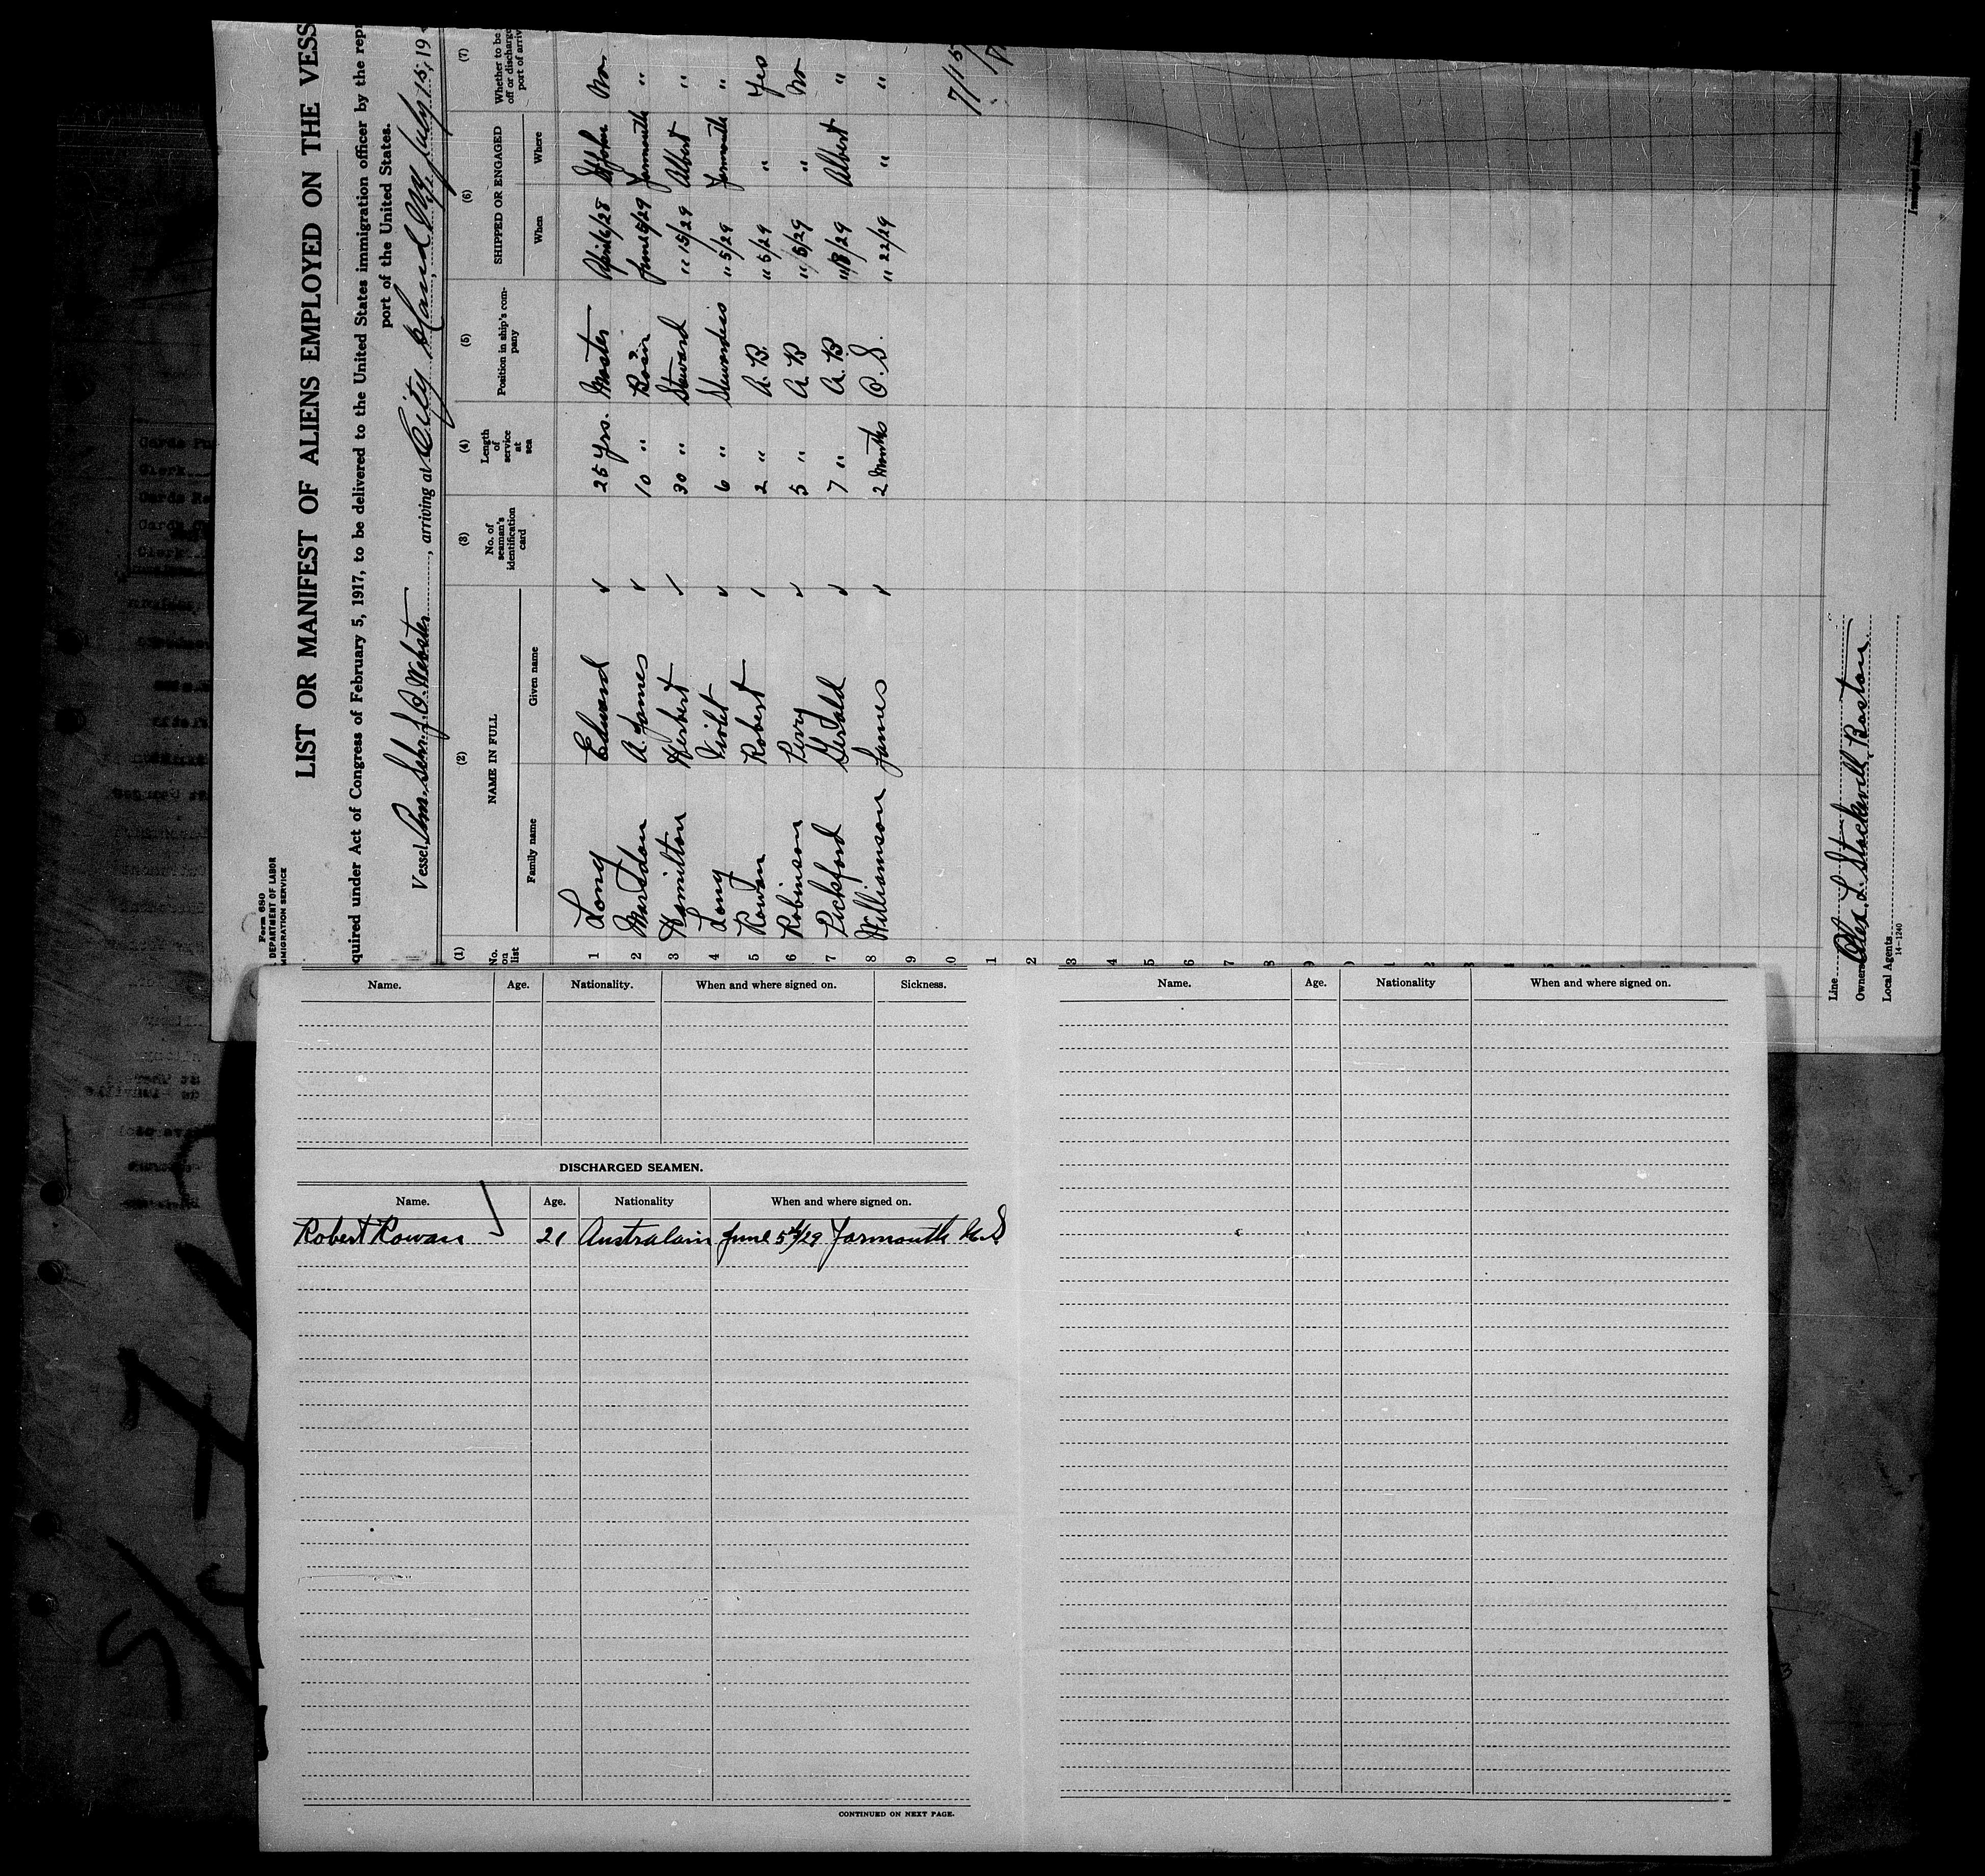 Form 680
DEPARTMENT OF LABOR
MMIGRATION SERVICE
LIST OR MANIFEST OF ALIENS EMPLOYED ON THE VESS
quired under Act of Congress of February 5, 1917, to be delivered to the United States immigration officer by the repr
port of the United States.
Vessel Am. Schr. J. O. Webster, arriving at City Island N.Y. July 15, 19
(1) (2) (3) (4) (5) (6) (7)
No. on list NAME IN FULL No. of seaman's identification card Length of service at sea Position in ship's com-pany SHIPPED OR ENGAGED Whether to be off or discharge port of arriv
Family name Given name When Where
1 Long Edward 25 yrs. Master April 6/28 St John No
2 Marsdon A. James 10 " Bos'n June 5/29 Yarmouth "
3 Hamilton Herbert 30 " Steward " 15/29 Albert "
4 Long Violet 6 " Stewardess " 5/29 Yarmouth "
5 Rowan Robert 2 " A. B. " 5/29 " Yes
6 Robinson Percy 5 " A. B " 5/29 " No
7 Pickford Gerald 7 " A. B " 18/29 Albert "
8 Williamson James 2 Months O. S. " 22/29 " "
9
0
1
2
3
4
5
6
7
8
9
0
1
2
3
7/15/
Line
Owners Alex. L. Stockwell, Boston
Local Agents
14-1240
Immigrant Inspector.
Name. Age. Nationality. When and where signed on. Sickness.
DISCHARGED SEAMEN.
Name. Age. Nationality When and where signed on.
Robert Rowan 21 Australain June 5th/29 Yarmouth N.S
CONTINUED ON NEXT PAGE.
Name. Age. Nationality When and where signed on.